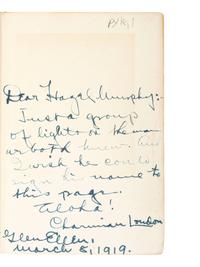 Dear Hazel Murphy:-
Just a group
of lights on the man
we both knew. And
I wish he could
sign his name to
this page.
Aloha!
Charmian London
Glen Ellen,
March 5, 1919.